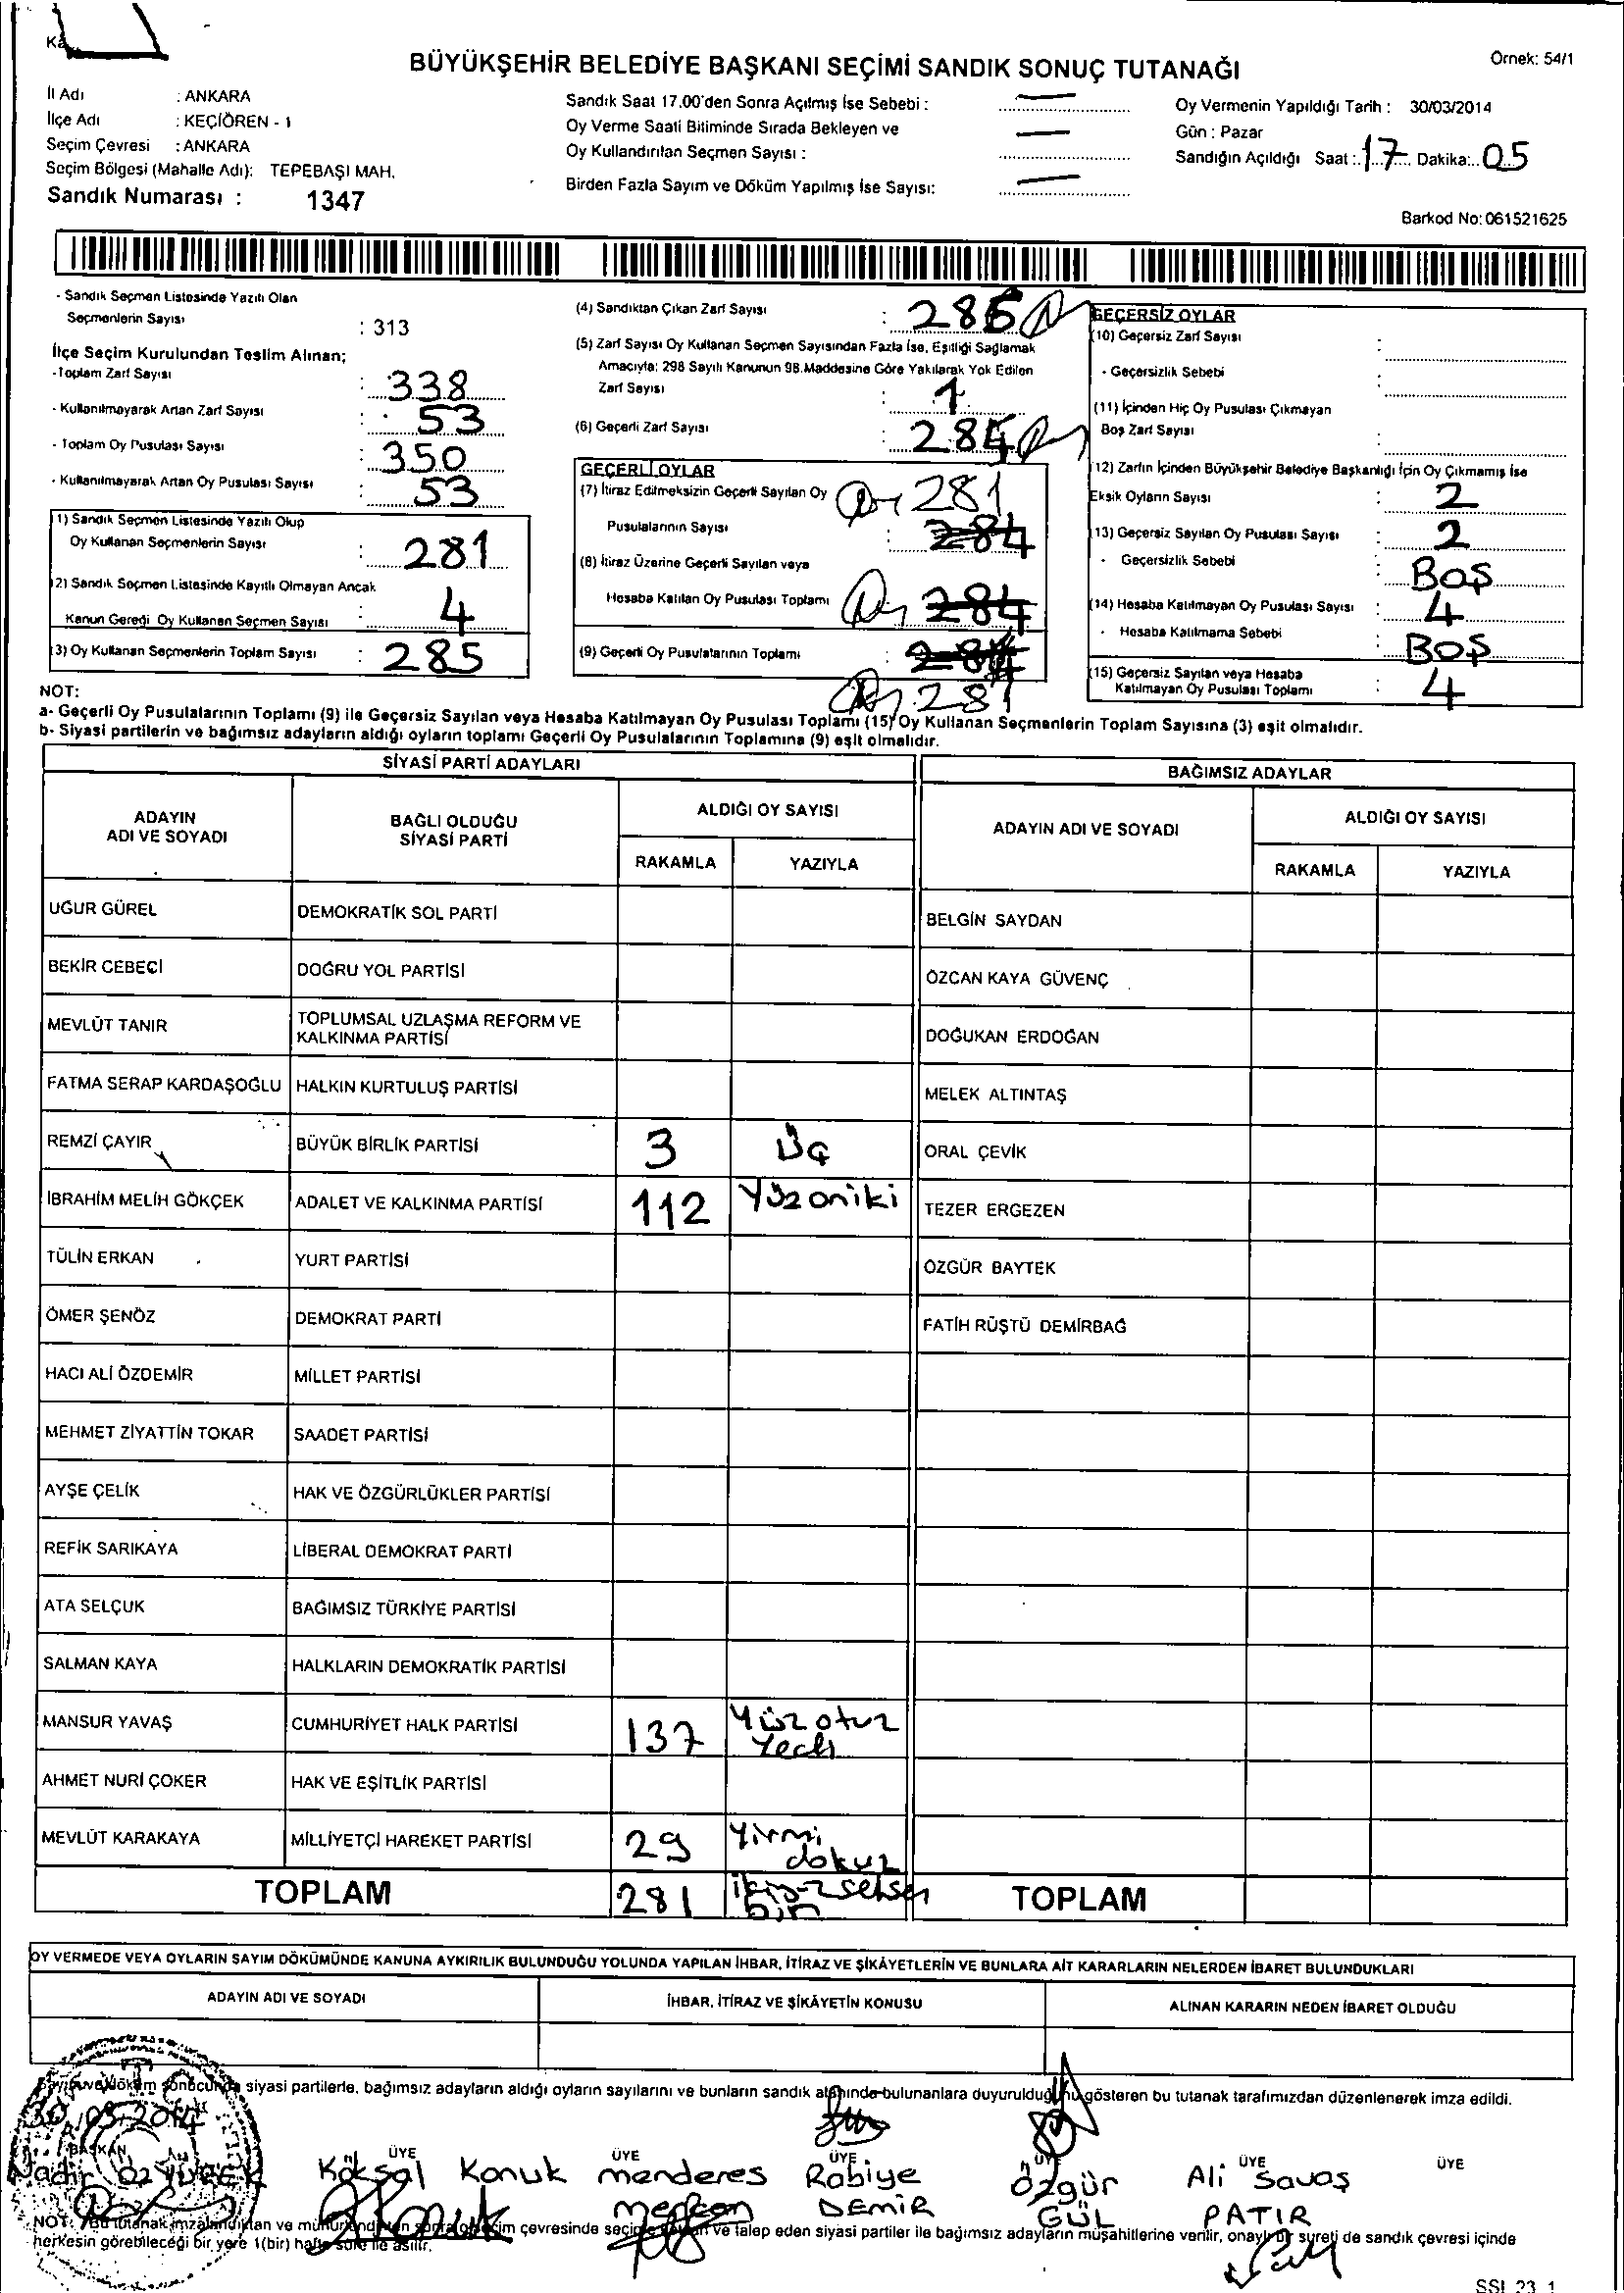 BÜYÜKŞEHİR BELEDİYE BAŞKANI SEÇİMİ SANDIK SONUÇ TUTANAĞI
Örnek: 54/1
İl Adı : ANKARA
İlçe Adı : KEÇİÖREN - 1
Seçim Çevresi : ANKARA
Seçim Bölgesi (Mahalle Adı): TEPEBAŞI MAH.
Sandık Numarası : 1347
Sandık Saat 17.00'den Sonra Açılmış İse Sebebi :
Oy Verme Saati Bitiminde Sırada Bekleyen ve
Oy Kullandırılan Seçmen Sayısı :
Birden Fazla Sayım ve Döküm Yapılmış İse Sayısı:
Oy Vermenin Yapıldığı Tarih : 30/03/2014
Gün : Pazar
Sandığın Açıldığı Saat : 17 Dakika: 05
Barkod No: 061521625
- Sandık Seçmen Listesinde Yazılı Olan
Seçmenlerin Sayısı : 313
İlçe Seçim Kurulundan Teslim Alınan;
- Toplam Zarf Sayısı : 338
- Kullanılmayarak Artan Zarf Sayısı : 53
- Toplam Oy Pusulası Sayısı : 350
- Kullanılmayarak Artan Oy Pusulası Sayısı : 53
(1) Sandık Seçmen Listesinde Yazılı Olup
Oy Kullanan Seçmenlerin Sayısı : 281
(2) Sandık Seçmen Listesinde Kayıtlı Olmayan Ancak
Kanun Gereği Oy Kullanan Seçmen Sayısı : 4
(3) Oy Kullanan Seçmenlerin Toplam Sayısı : 285
(4) Sandıktan Çıkan Zarf Sayısı :
(5) Zarf Sayısı Oy Kullanan Seçmen Sayısından Fazla İse, Eşitliği Sağlamak
Amacıyla; 298 Sayılı Kanunun 98.Maddesine Göre Yakılarak Yok Edilen
Zarf Sayısı : 1
(6) Geçerli Zarf Sayısı :
GEÇERLİ OYLAR
(7) İtiraz Edilmeksizin Geçerli Sayılan Oy 281
Pusulalarının Sayısı : 284
(8) İtiraz Üzerine Geçerli Sayılan veya
Hesaba Katılan Oy Pusulası Toplamı 284
(9) Geçerli Oy Pusulalarının Toplamı : 284
281
GEÇERSİZ OYLAR
(10) Geçersiz Zarf Sayısı :
- Geçersizlik Sebebi :
(11) İçinden Hiç Oy Pusulası Çıkmayan
Boş Zarf Sayısı :
(12) Zarfın İçinden Büyükşehir Belediye Başkanlığı İçin Oy Çıkmamış İse
Eksik Oyların Sayısı : 2
(13) Geçersiz Sayılan Oy Pusulası Sayısı : 2
- Geçersizlik Sebebi : BOŞ
(14) Hesaba Katılmayan Oy Pusulası Sayısı : 4
- Hesaba Katılmama Sebebi : BOŞ
(15) Geçersiz Sayılan veya Hesaba
Katılmayan Oy Pusulası Toplamı : 4
NOT:
a- Geçerli Oy Pusulalarının Toplamı (9) ile Geçersiz Sayılan veya Hesaba Katılmayan Oy Pusulası Toplamı (15) Oy Kullanan Seçmenlerin Toplam Sayısına (3) eşit olmalıdır.
b- Siyasi partilerin ve bağımsız adayların aldığı oyların toplamı Geçerli Oy Pusulalarının Toplamına (9) eşit olmalıdır.
SİYASİ PARTİ ADAYLARI
ADAYIN ADI VE SOYADI
BAĞLI OLDUĞU SİYASİ PARTİ
ALDIĞI OY SAYISI
RAKAMLA YAZIYLA
UĞUR GÜREL DEMOKRATİK SOL PARTİ
BEKİR CEBECİ DOĞRU YOL PARTİSİ
MEVLÜT TANIR TOPLUMSAL UZLAŞMA REFORM VE
KALKINMA PARTİSİ
FATMA SERAP KARDAŞOĞLU HALKIN KURTULUŞ PARTİSİ
REMZİ ÇAYIR BÜYÜK BİRLİK PARTİSİ 3 Üç
İBRAHİM MELİH GÖKÇEK ADALET VE KALKINMA PARTİSİ 112 Yüzoniki
TÜLİN ERKAN YURT PARTİSİ
ÖMER ŞENÖZ DEMOKRAT PARTİ
HACI ALİ ÖZDEMİR MİLLET PARTİSİ
MEHMET ZİYATTİN TOKAR SAADET PARTİSİ
AYŞE ÇELİK HAK VE ÖZGÜRLÜKLER PARTİSİ
REFİK SARIKAYA LİBERAL DEMOKRAT PARTİ
ATA SELÇUK BAĞIMSIZ TÜRKİYE PARTİSİ
SALMAN KAYA HALKLARIN DEMOKRATİK PARTİSİ
MANSUR YAVAŞ CUMHURİYET HALK PARTİSİ 137 Yüzotuz
Yedi
AHMET NURİ ÇOKER HAK VE EŞİTLİK PARTİSİ
MEVLÜT KARAKAYA MİLLİYETÇİ HAREKET PARTİSİ 29 Yirmi
dokuz
TOPLAM 281 ikiyüzseksen
bir
BAĞIMSIZ ADAYLAR
ADAYIN ADI VE SOYADI
ALDIĞI OY SAYISI
RAKAMLA YAZIYLA
BELGİN SAYDAN
ÖZCAN KAYA GÜVENÇ
DOĞUKAN ERDOĞAN
MELEK ALTINTAŞ
ORAL ÇEVİK
TEZER ERGEZEN
ÖZGÜR BAYTEK
FATİH RÜŞTÜ DEMİRBAĞ
TOPLAM
OY VERMEDE VEYA OYLARIN SAYIM DÖKÜMÜNDE KANUNA AYKIRILIK BULUNDUĞU YOLUNDA YAPILAN İHBAR, İTİRAZ VE ŞİKÂYETLERİN VE BUNLARA AİT KARARLARIN NELERDEN İBARET BULUNDUKLARI
ADAYIN ADI VE SOYADI
İHBAR, İTİRAZ VE ŞİKÂYETİN KONUSU
ALINAN KARARIN NEDEN İBARET OLDUĞU
siyasi partilerle, bağımsız adayların aldığı oyların sayılarını ve bunların sandık alanında bulunanlara duyurulduğunu gösteren bu tutanak tarafımızdan düzenlenerek imza edildi.
30.03.2014
BAŞKAN ÜYE ÜYE ÜYE ÜYE ÜYE ÜYE
Köksal Konuk menderes Rabiye Özgür Ali Savaş
DEMİR GÜL PATIR
NOT: Bu tutanak imzalandıktan ve çevresinde ve talep eden siyasi partiler ile bağımsız adayların müşahitlerine verilir, onaylı bir sureti de sandık çevresi içinde
herkesin görebileceği bir yere 1(bir) hafta süre ile asılır.
SSL 23 1